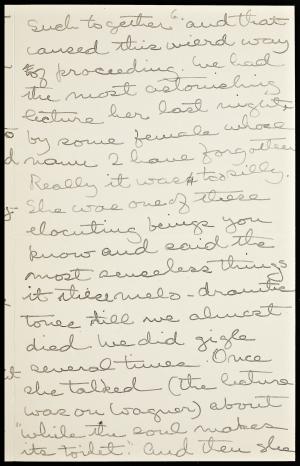 such together" and that
caused this wierd way
of proceeding. We had
the most astounishing
lecture her last night,
by some female whose
name I have forgotten
Really it was too silly.
She was one of these
elocuting beings you
know and said the
most senseless things
in melo-dramatic
tones till we almost
died. We did gigle
several times. Once
she talked (the lecture
was on Wagner) about
"while the soul makes
its toilet." and then she